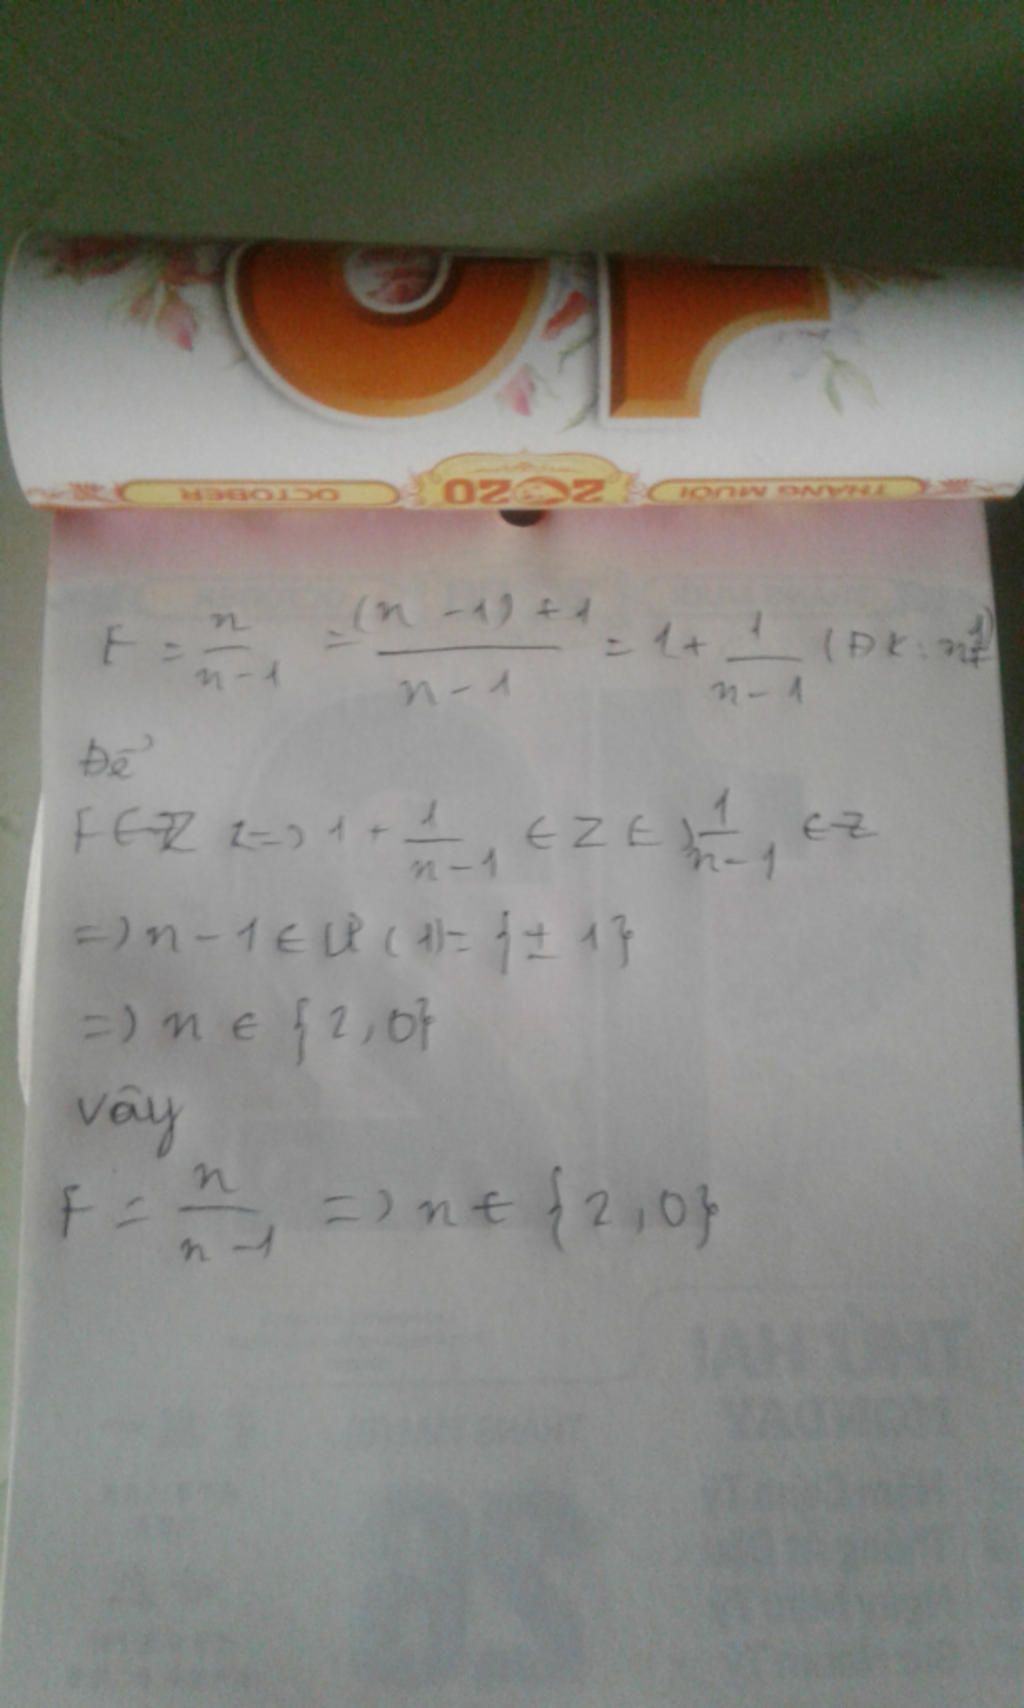 OCTOBER 2020 THÁNG MƯỜI
F = n/(n-1) = ((n-1)+1)/(n-1) = 1 + 1/(n-1) (ĐK: n≠1)
Để
F ∈ Z <=> 1 + 1/(n-1) ∈ Z <=> 1/(n-1) ∈ Z
=> n-1 ∈ Ư(1) = {±1}
=> n ∈ {2,0}
Vậy
F = n/(n-1) => n ∈ {2,0}
THỨ HAI
MONDAY